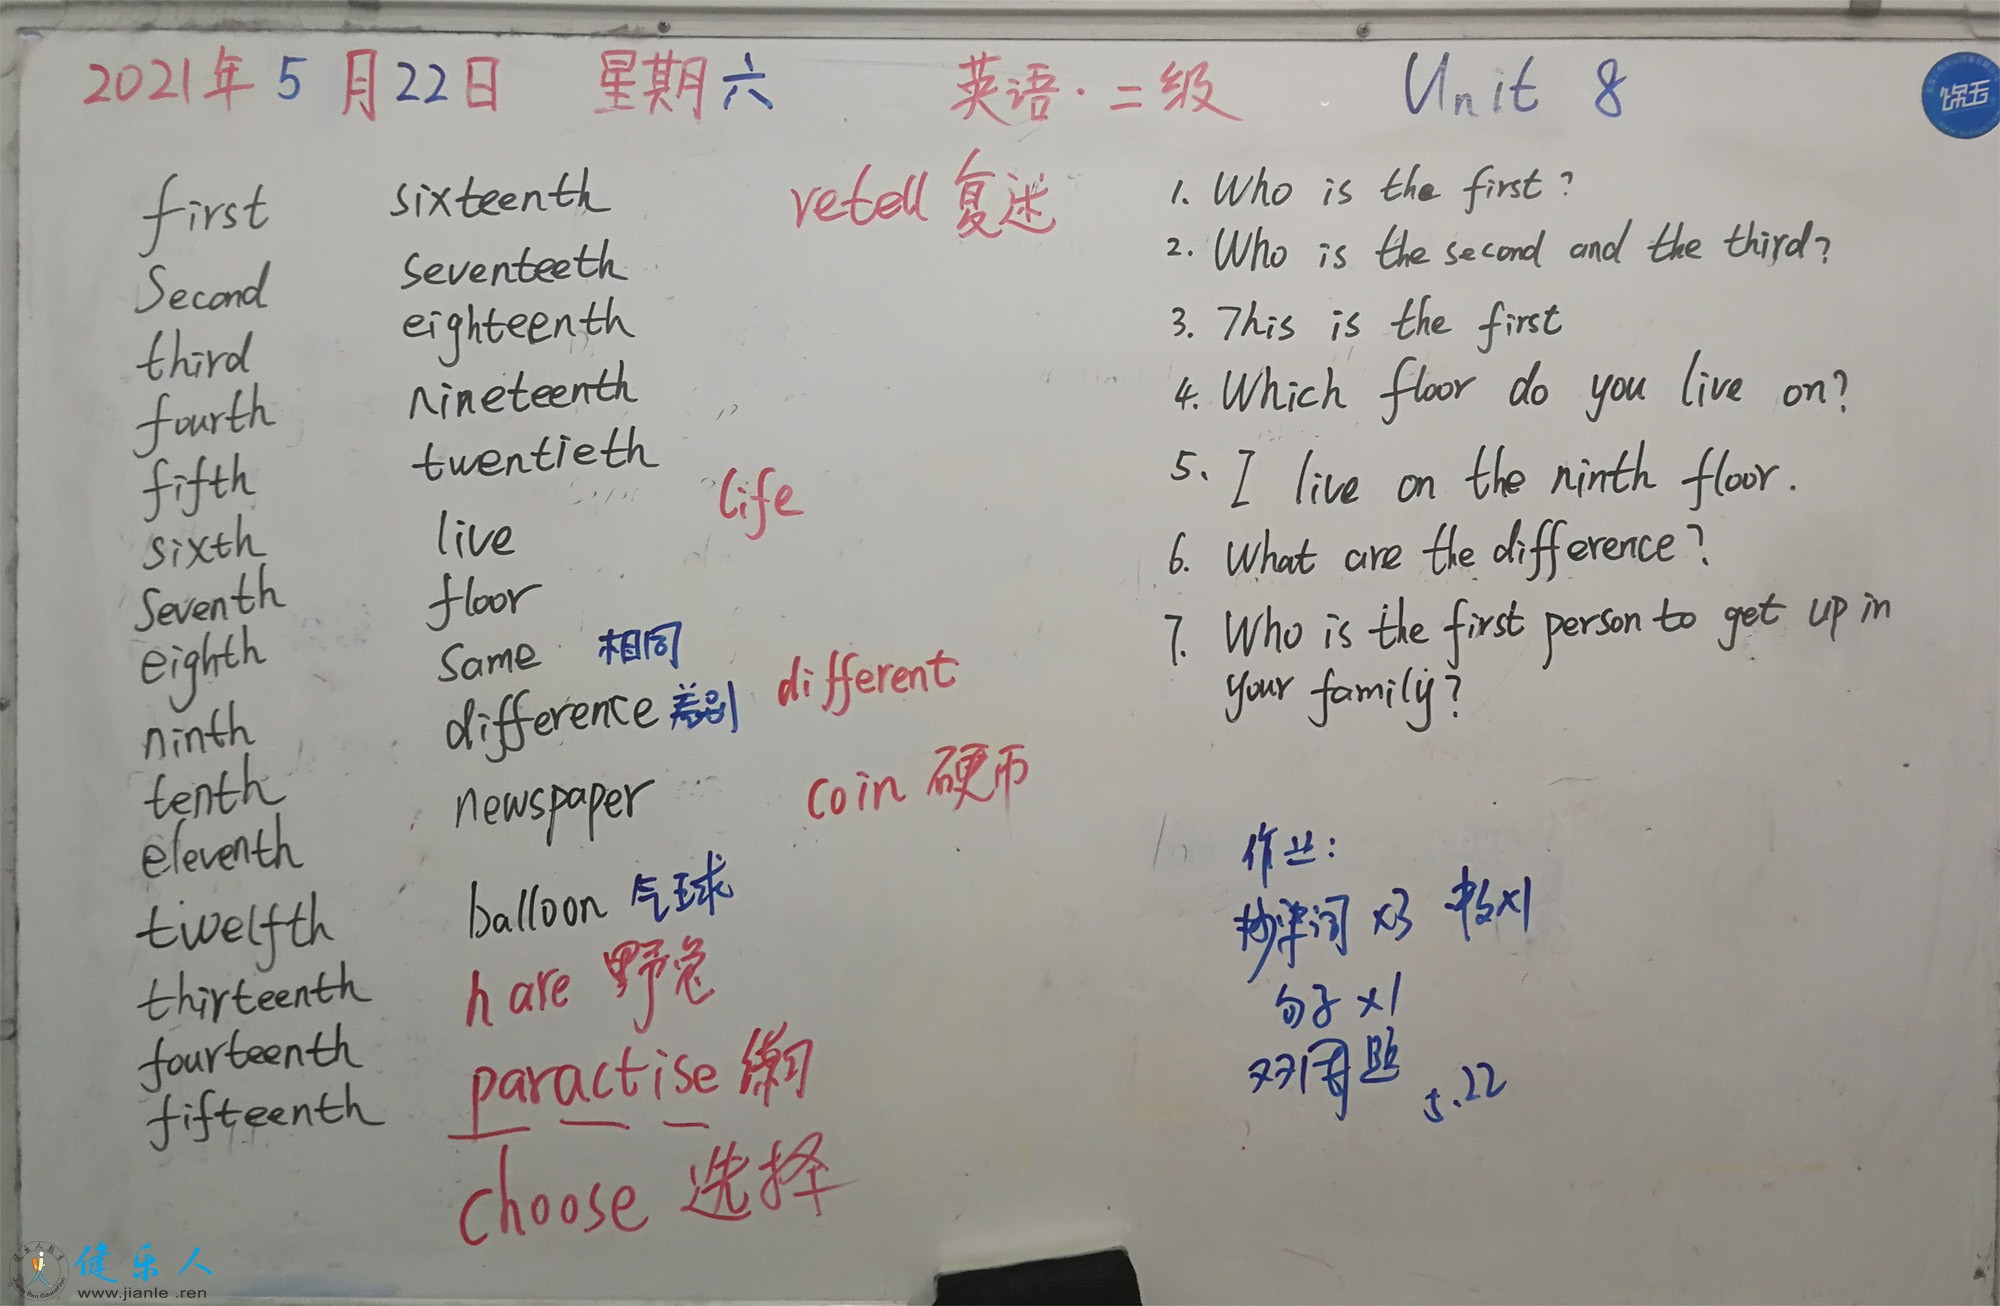 2021年 5 月 22 日 星期六 英语·二级 Unit 8
饭
first
Second
third
fourth
fifth
sixth
Seventh
eighth
ninth
tenth
eleventh
twelfth
thirteenth
fourteenth
fifteenth
sixteenth
seventeeth
eighteenth
nineteenth
twentieth
live life
floor
same 相同
difference 差别 different
newspaper coin 硬币
balloon 气球
hare 野兔
paractise 练习
choose 选择
retell 复述
1. Who is the first?
2. Who is the second and the third?
3. This is the first
4. Which floor do you live on?
5. I live on the ninth floor.
6. What are the difference?
7. Who is the first person to get up in
your family?
作业:
抄单词 x3 x1
句子 x1
题 5.22
健乐人
www.jianle.ren